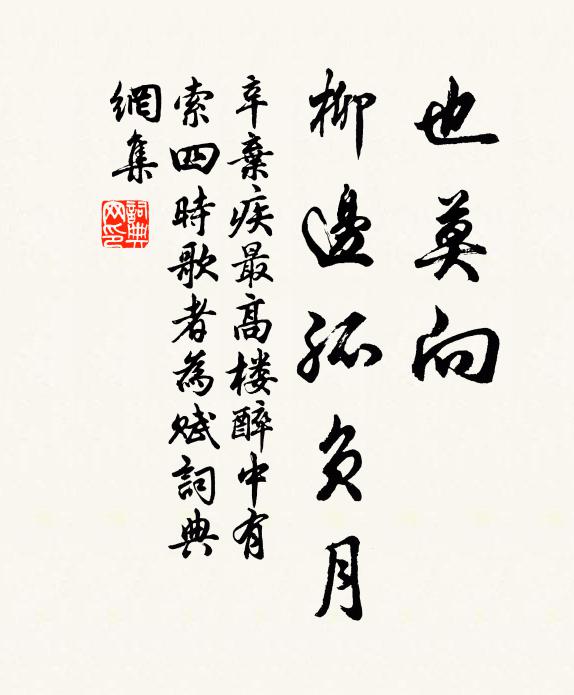 也莫向
柳邊孤負月
辛棄疾最高楼醉中有
索四時歌者為赋詞典
網集
詞典
网印